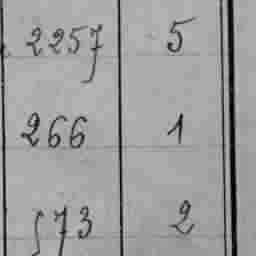 2257 5
266 1
573 2